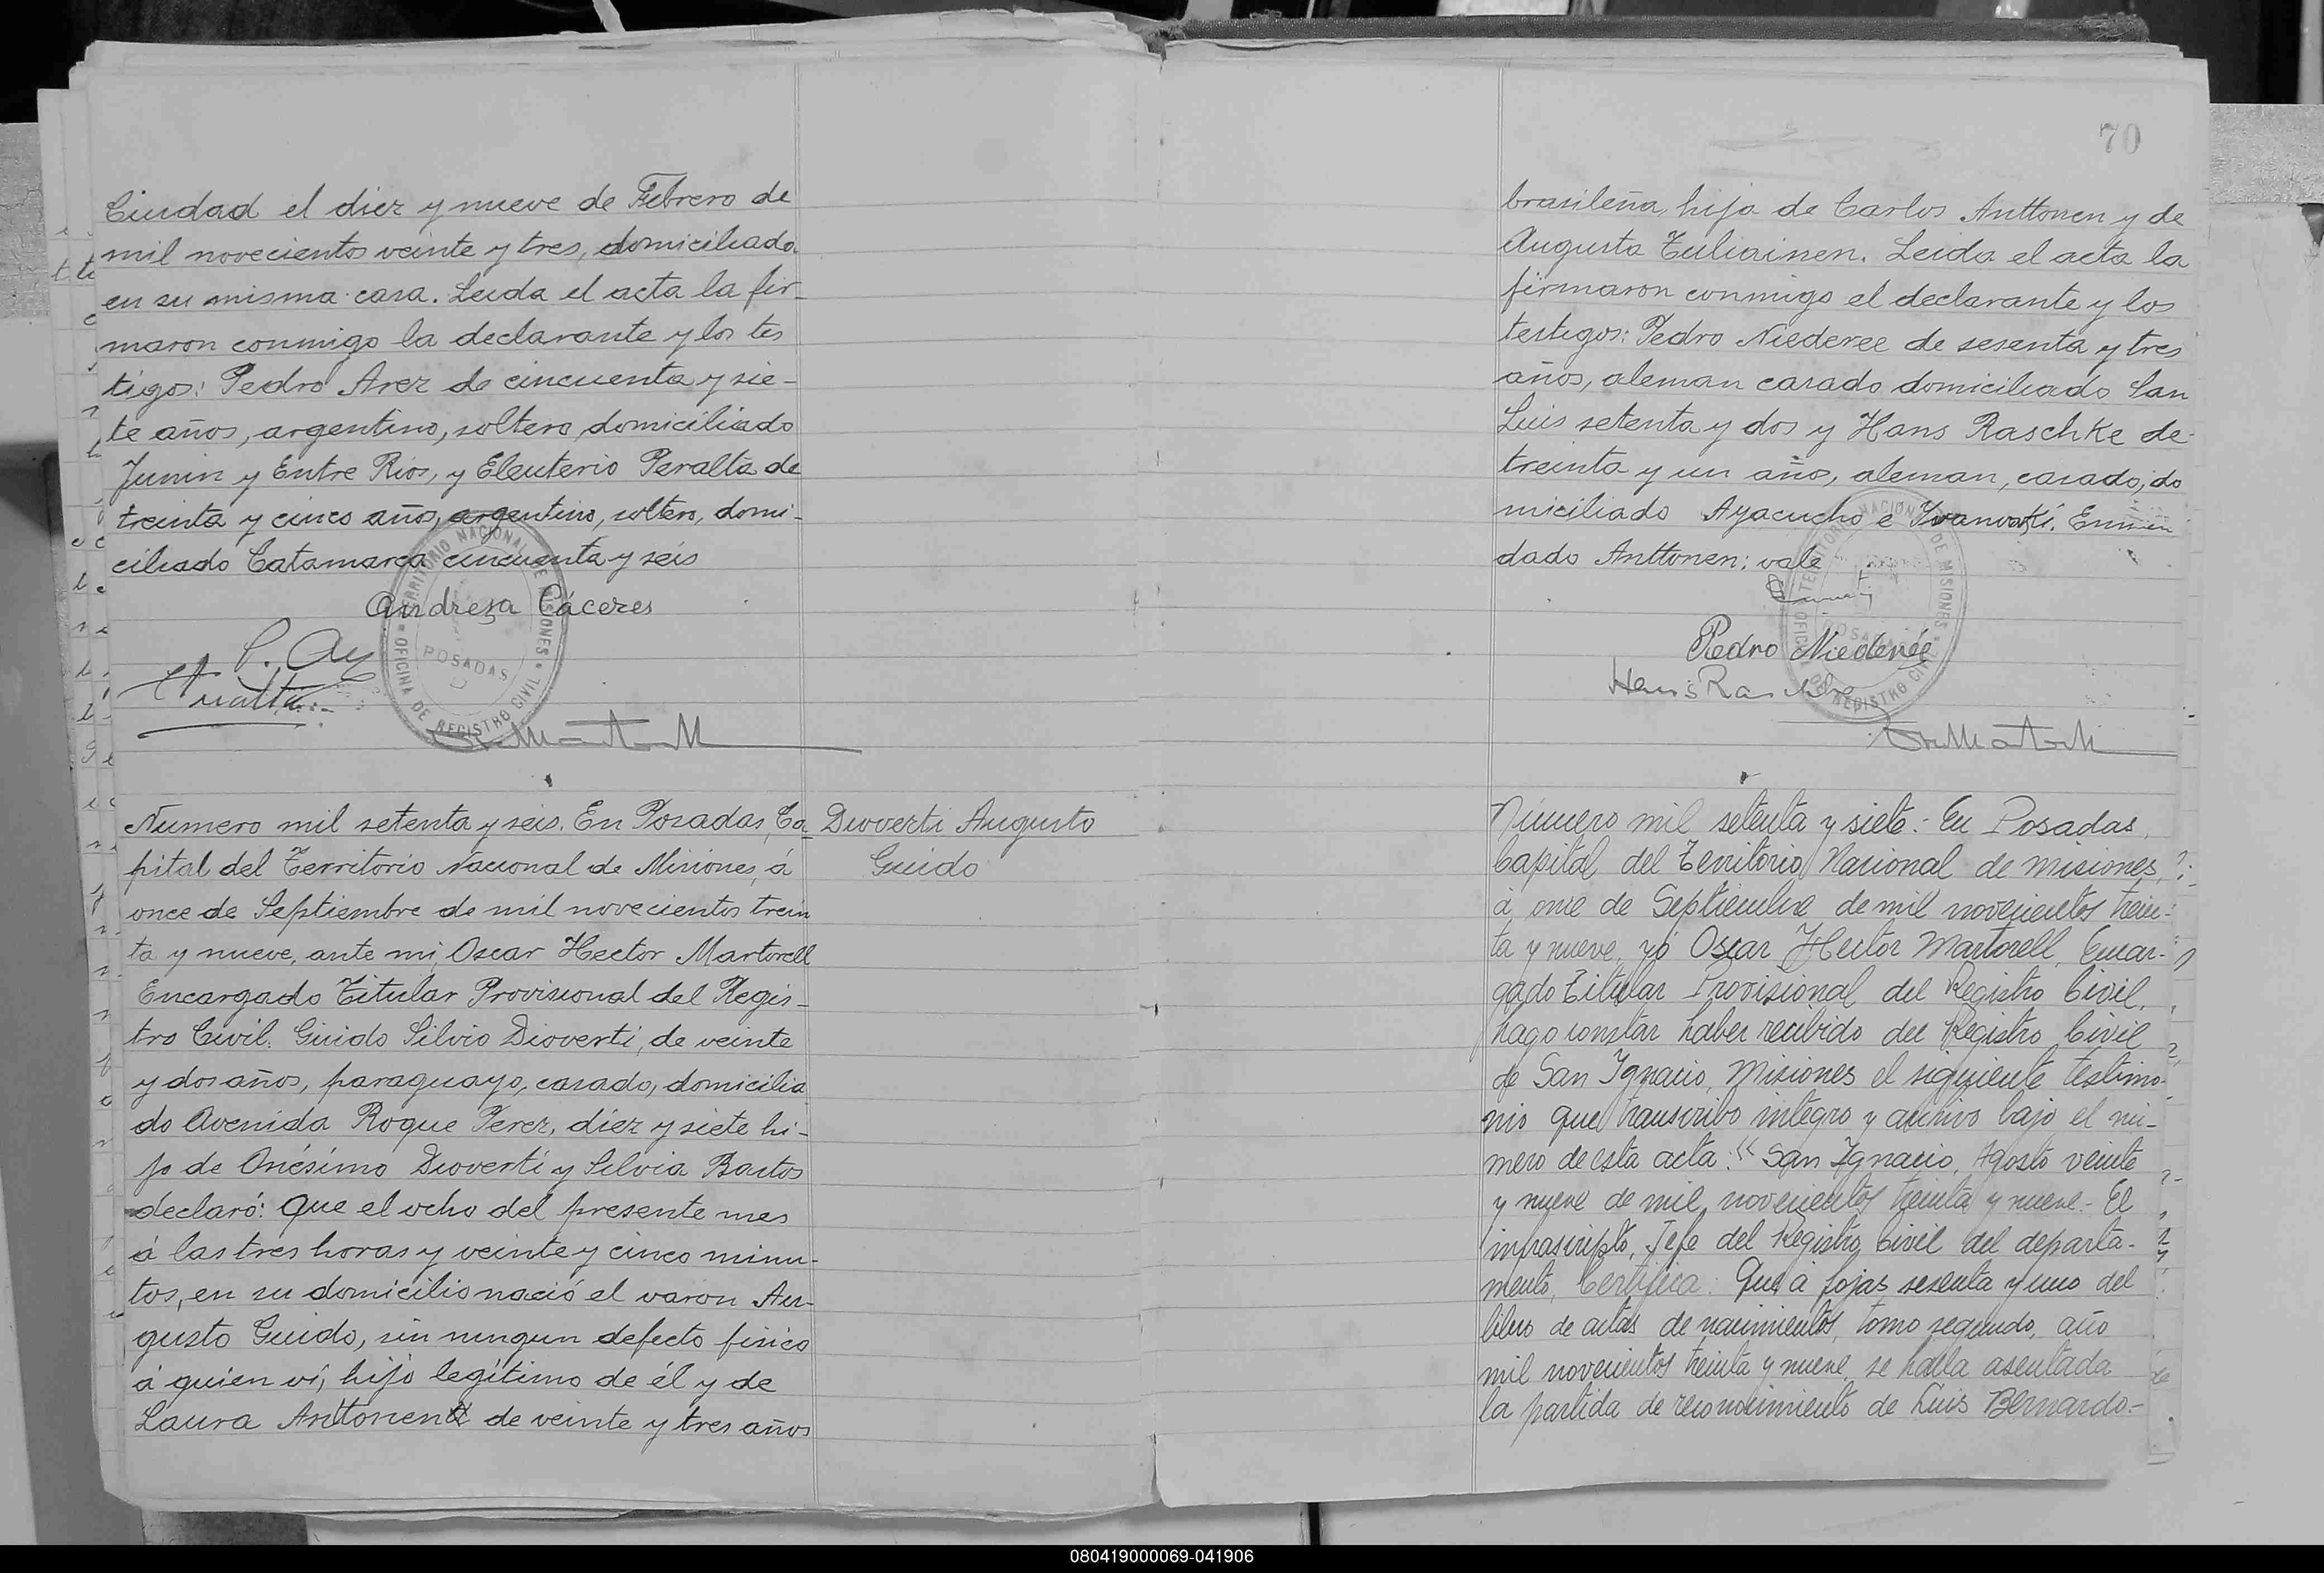 Ciudad el diez y nueve de Febrero de
mil novecientos veinte y tres, domiciliada
en su misma casa. Leida el acta la fir-
maron conmigo la declarante y los tes
tigos: Pedro Arez de cincuenta y sie-
te años, argentino, soltero, domiciliado
Junin y Entre Rios, y Eleuterio Peralta de
treinta y cinco años, argentino, soltero, domi-
ciliado Catamarca cincuenta y seis
Andresa Cáceres
TERRITORIO NACIONAL DE MISIONES
OFICINA DE REGISTRO CIVIL
POSADAS
Numero mil setenta y seis. En Posadas, Ca-
pital del Territorio Nacional de Misiones, á
once de Septiembre de mil novecientos trein
ta y nueve, ante mi, Oscar Hector Martorell
Encargado Titular Provisional del Regis-
tro Civil. Guido Silvio Dioverti, de veinte
y dos años, paraguayo, casado, domicilia
do Avenida Roque Perez, diez y siete hi-
jo de Onésimo Dioverti y Silvia Bastos
declaró: Que el ocho del presente mes
á las tres horas y veinte y cinco minu-
tos, en su domicilio nació el varon Au-
gusto Guido, sin ningun defecto fisico
á quien vi, hijo legítimo de él y de
Laura Anttonen de veinte y tres años
Dioverti Augusto
Guido
70
brasileña, hija de Carlos Anttonen y de
Augusta Tuliainen. Leida el acta la
firmaron conmigo el declarante y los
testigos: Pedro Niederee de sesenta y tres
años, aleman casado domiciliado San
Luis setenta y dos y Hans Raschke de
treinta y un año, aleman, casado, do
miciliado Ayacucho e Ivanoski. Enmen
dado Anttonen: vale
Pedro Niederée
Hans Raschke
TERRITORIO NACIONAL DE MISIONES
OFICINA DE REGISTRO CIVIL
POSADAS
Número mil setenta y siete:- En Posadas,
Capital del Territorio Nacional de Misiones,
á once de Septiembre de mil novecientos trein-
ta y nueve, yo Oscar Hector Martorell, Encar-
gado Titular Provisional del Registro Civil,
hago constar haber recibido del Registro Civil
de San Ignacio, Misiones el siguiente testimo-
nio que transcribo integro y archivo bajo el nú-
mero de esta acta: "San Ignacio, Agosto veinte
y nueve de mil novecientos treinta y nueve.- El
infrascripto, Jefe del Registro Civil del departa-
mento, Certifica: Que á fojas sesenta y uno del
libro de actas de nacimientos, tomo segundo, año
mil novecientos treinta y nueve, se halla asentada
la partida de reconocimiento de Luis Bernardo.-
080419000069-041906